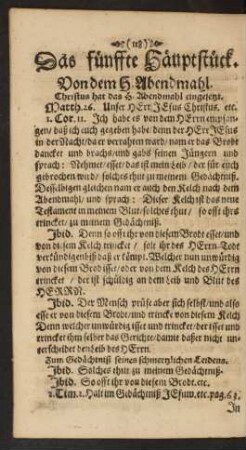 (118)
Das fünffte Häuptstück.
Von dem H. Abendmahl.
Christus hat das H. Abendmahl eingesetzt.
Matth. 26. Unser HErr JEsus Christus, etc.
1. Cor. 11. Ich habe es von dem HErrn empfan-
gen/ daß ich euch gegeben habe/ denn der HErr JEsus
in der Nacht/ da er verrahten ward/ nam er das Brodt
dancket und brachs/ und gabs seinen Jüngern und
sprach: Nehmet/ esset/ das ist mein heib/ der für euch
gebrochen wird/ solches thut zu meinem Gedächtniß.
Desselbigen gleichen nam er auch den Kelch nach dem
Abendmahl, und sprach: Dieser Kelch ist das neue
Testament in meinem Blut/ solches thut/ so offt ihrs
trincket/ zu meinem Gedächtniß.
Ibid. Denn so offt ihr von diesem Brodt esset/ und
von diesem Kelch trincket/ solt ihr des HErrn Tode
verkündigen biß daß er kömpt. Welcher nun unwürdig
von diesem Brod isset/ oder von dem Kelch des HErrn
trincket/ der ist schuldig an dem heib und Blut des
HERRN.
Ibid. Der Mensch prüfe aber sich selbst/ und also
esse er von diesem Brodt/ und trincke von diesem Kelch
Denn welcher unwürdig isset und trincket/ der isset und
trincket ihm selber das Gerichte/ damit daß er nicht un-
terscheidet den heib des HErrn.
Zum Gedächtniß seines schmertzlichen Leidens.
Ibid. Solches thut zu meinem Gedächtniß.
Ibid. So offt ihr von diesem Brodt. etc.
2. Tim. 2. Halt im Gedächtniß JEsum. etc. pag. 63.
In